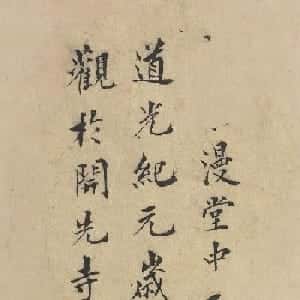 漫堂中
道光紀元歲
觀於開先寺